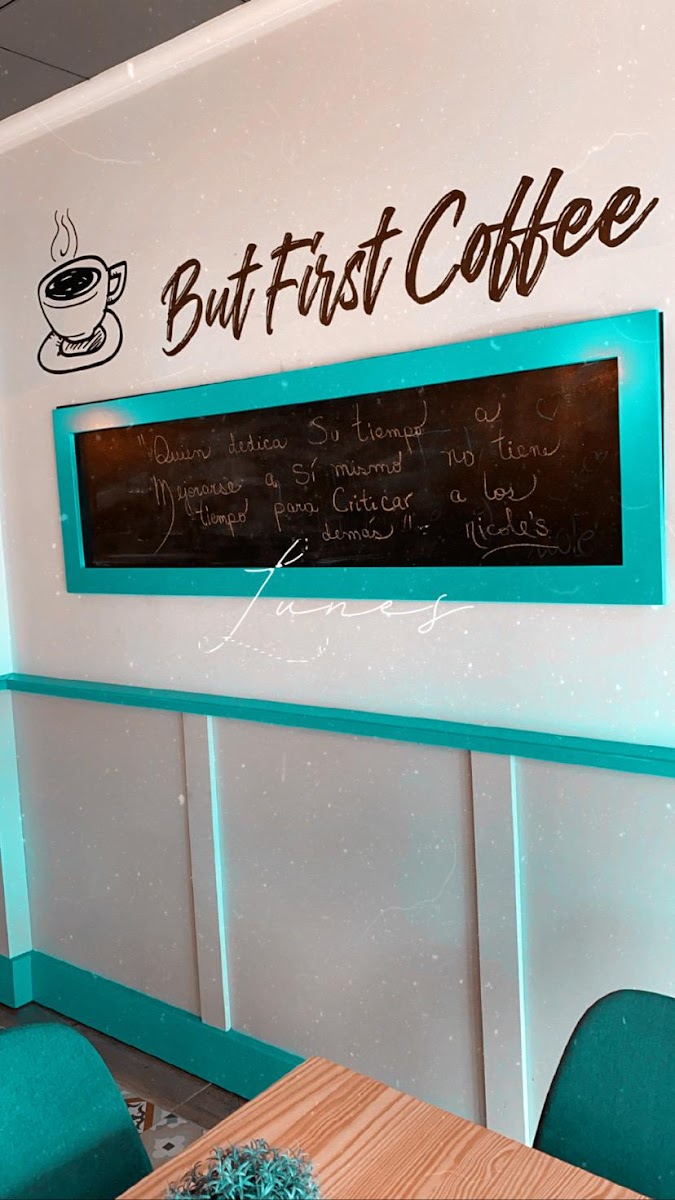 But First Coffee
"Quien dedica Su tiempo a
Mejorarse a Sí mismo no tiene
tiempo para Criticar a los
demás" - Nicole's
Lunes